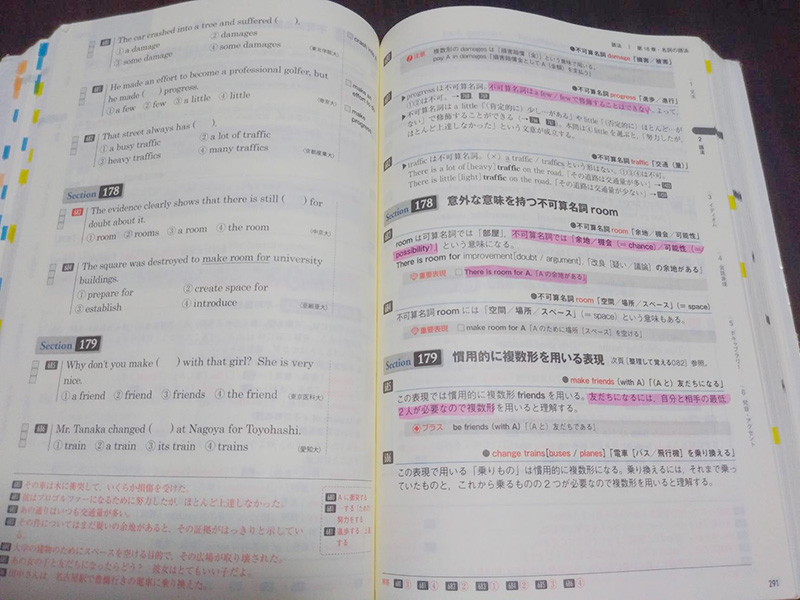 The car crashed into a tree and suffered (　).
① a damage ② damages
③ some damage ④ some damages
He made an effort to become a professional golfer, but
he made (　) progress.
① a few ② few ③ a little ④ little
That street always has (　).
① a busy traffic ② a lot of traffic
③ heavy traffics ④ many traffics
(京都産業大)
Section 178
The evidence clearly shows that there is still (　) for
doubt about it.
① room ② rooms ③ a room ④ the room
(中京大)
The square was destroyed to make room for university
buildings.
① prepare for ② create space for
③ establish ④ introduce
Section 179
Why don't you make (　) with that girl? She is very
nice.
① a friend ② friend ③ friends ④ the friend
(東京医科大)
Mr. Tanaka changed (　) at Nagoya for Toyohashi.
① train ② a train ③ its train ④ trains
(愛知大)
その車は木に衝突して、いくらか損傷を受けた。
彼はプロゴルファーになるために努力したが、ほとんど上達しなかった。
あの通りはいつも交通量が多い。
その件についてはまだ疑いの余地があると、その証拠がはっきりと示してい
る。
大学の建物のためにスペースを空ける目的で、その広場が取り壊された。
あの女の子と友だちになったらどう？ 彼女はとてもいい子だよ。
田中さんは、名古屋駅で豊橋行きの電車に乗り換えた。
●不可算名詞 damage「損害／被害」
注意 複数形の damages は「損害賠償（金）」という意味で用いる。
●不可算名詞 progress「進歩／進行」
▶progress は不可算名詞。不可算名詞は a few / few で修飾することはできない。よって、
①②は不可。
ほとんど上達しなかった」という文意が成立する。
●不可算名詞 traffic「交通（量）」
▶traffic は不可算名詞。(×) a traffic / traffics という形はない。①③④は不可。
There is a lot of [heavy] traffic on the road.「その道路は交通量が多い」
There is little [light] traffic on the road.「その道路は交通量が少ない」
Section 178 意外な意味を持つ不可算名詞 room
●不可算名詞 room「余地／機会／可能性」
room は可算名詞では「部屋」、不可算名詞では「余地／機会 (= chance)／可能性 (=
possibility)」という意味になる。
There is room for improvement [doubt / argument].「改良［疑い／議論］の余地がある」
重要表現 □ There is room for A.「A の余地がある」
●不可算名詞 room「空間／場所／スペース」(= space)
不可算名詞 room には「空間／場所／スペース」(= space) という意味もある。
重要表現 □ make room for A「A のために場所［スペース］を空ける」
Section 179 慣用的に複数形を用いる表現 次頁［整理して覚える082］参照。
● make friends (with A)「（A と）友だちになる」
この表現では慣用的に複数形 friends を用いる。友だちになるには、自分と相手の最低
2人が必要なので複数形を用いると理解する。
プラス be friends (with A)「（A と）友だちである」
● change trains [buses / planes]「電車［バス／飛行機］を乗り換える」
この表現で用いる「乗りもの」は慣用的に複数形になる。乗り換えるには、それまで乗っ
ていたものと、これから乗るものの2つが必要なので複数形を用いると理解する。
291